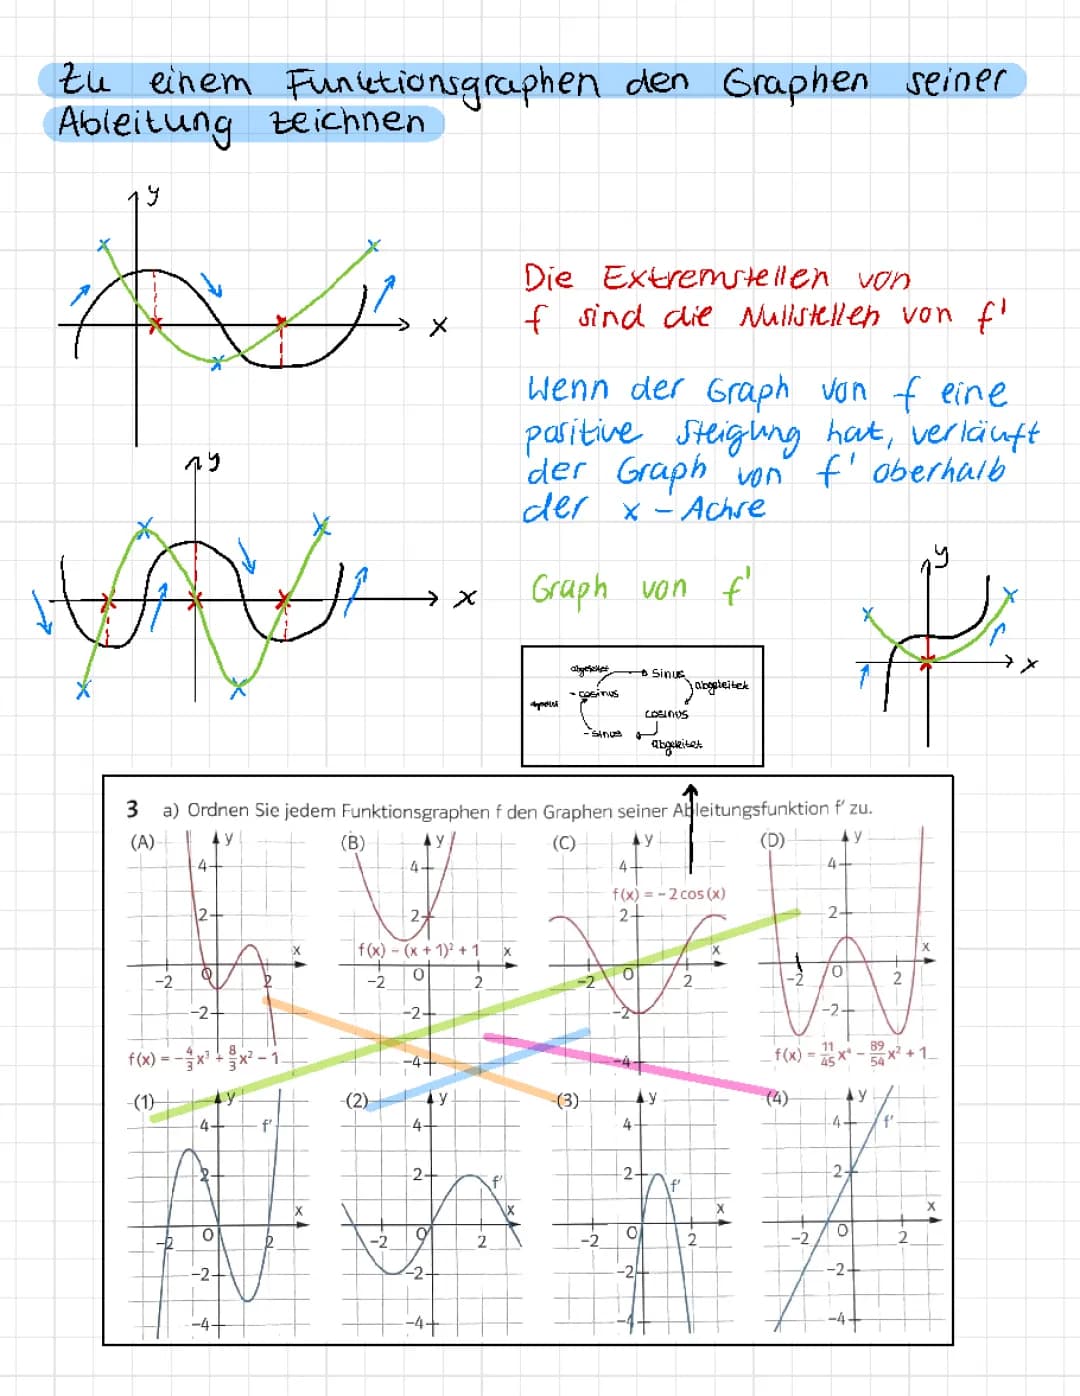 Zu einem Funktionsgraphen den Graphen seiner
Ableitung zeichnen
y
x
Die Extremstellen von
f sind die Nullstellen von f'
Wenn der Graph von f eine
positive Steigung hat, verläuft
der Graph von f' oberhalb
der x - Achse
y
x
Graph von f'
y
x
abgeleitet
sinus
abgeleitet
- cosinus
cosinus
- sinus
abgeleitet
3 a) Ordnen Sie jedem Funktionsgraphen f den Graphen seiner Ableitungsfunktion f' zu.
(A) y 4 2 x -2 O 2 -2
f(x) = -4/3x³ + 8/3x² - 1
(B) y 4 2
f(x) - (x + 1)² + 1 x
-2 O 2 -2 -4
(C) y 4
f(x) = -2 cos(x)
2 x -2 O 2 -2 -4
(D) y 4 2 x -2 O 2 -2
f(x) = 11/45x⁴ - 89/54x² + 1
(1) y 4 f' 2 x -2 O 2 -2 -4
(2) y 4 2 f' x -2 O 2 -2 -4
(3) y 4 2 f' x -2 O 2 -2 -4
(4) y 4 f' 2 x -2 O 2 -2 -4